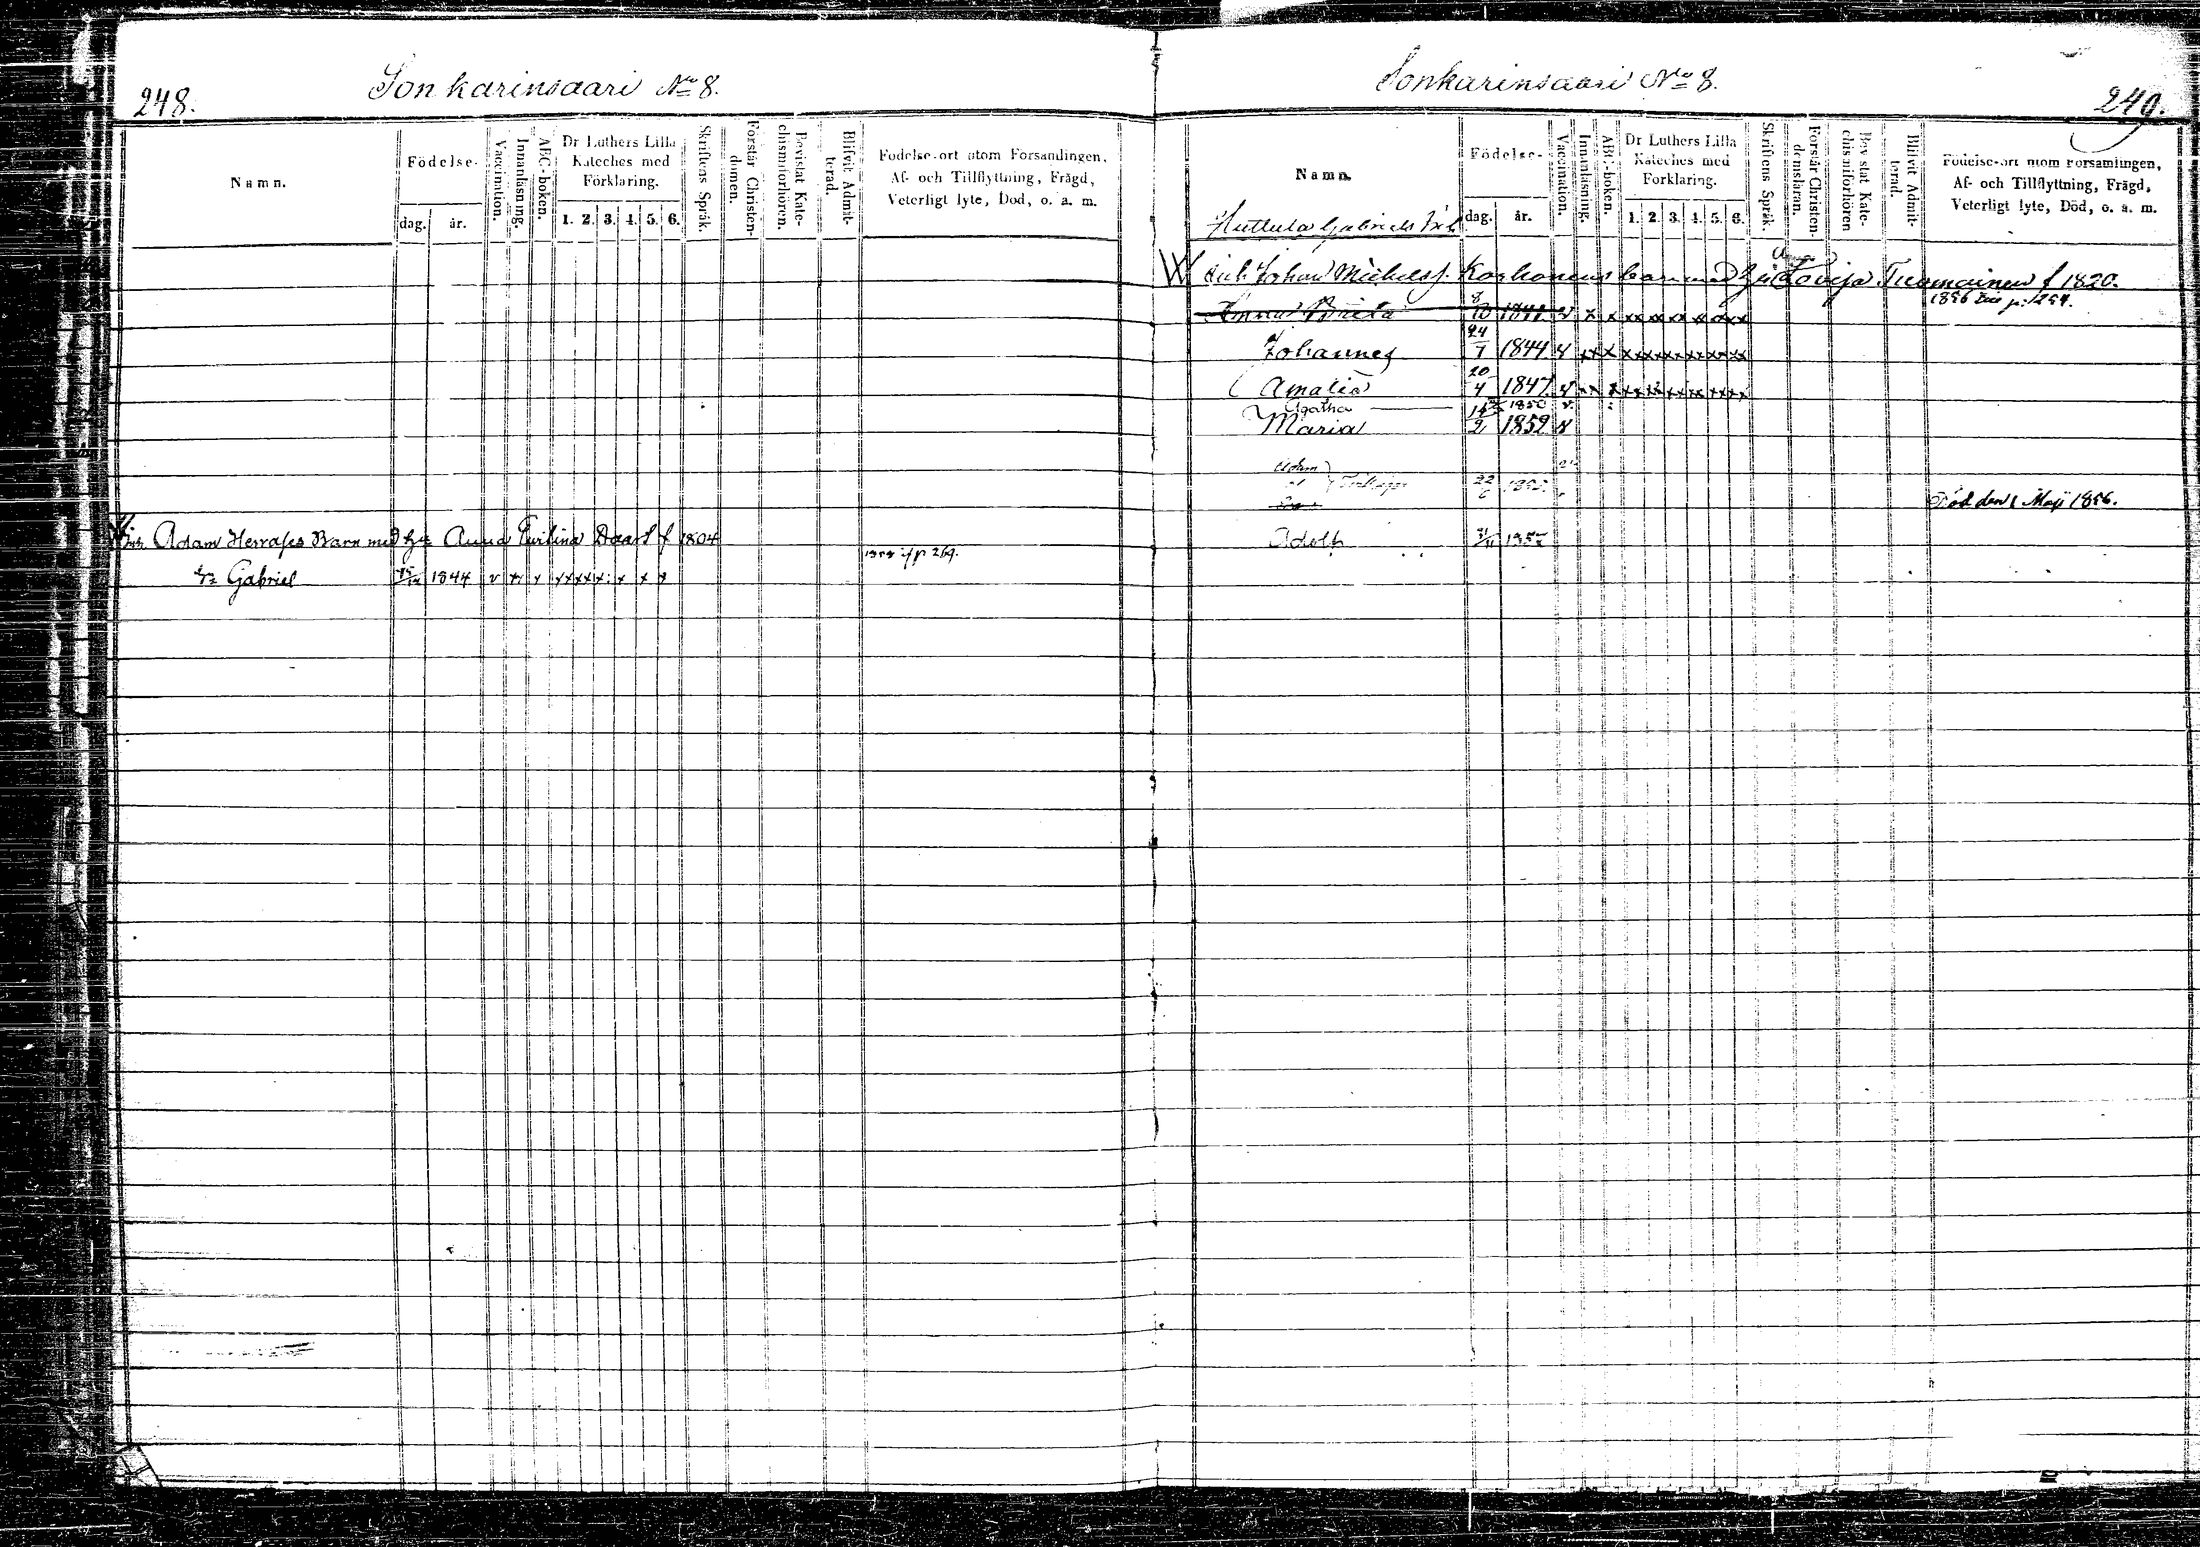 248.
Sonkarinsaari No 8.
Namn.
Födelse-
dag. år.
Vaccination.
Innanläsning.
ABC-boken.
Dr Luthers Lilla
Kateches med
Förklaring.
1. 2. 3. 4. 5. 6.
Skriftens Språk.
Förstår Christen-
domen.
Bevistat Kate-
chismiförhören.
Blifvit Admit-
terad.
Födelse-ort utom Församlingen,
Af- och Tillflyttning, Frägd,
Veterligt lyte, Död, o. a. m.
Adam Herrases Barn med Anna Daart f 1804
p 269.
Gabriel 1844 v x x x x x x x x x
Sonkarinsaari No 8.
249.
Namn.
Födelse-
dag. år.
Vaccination.
Innanläsning.
ABC-boken.
Dr Luthers Lilla
Kateches med
Förklaring.
1. 2. 3. 4. 5. 6.
Skriftens Språk.
Förstår Christen-
domsläran.
Bevistat Kate-
chismiförhören
Blifvit Admit-
terad.
Födelse-ort utom Församlingen,
Af- och Tillflyttning, Frägd,
Veterligt lyte, Död, o. a. m.
Huttula Gabriels
Inh Johan Michelss. Korhonens barn med Lovisa Tuomainen f 1820.
Anna Brita 8/10 1841 v
1856 p. 1254.
Johannes 24/7 1844 v
Amalia 20/4 1847 v
Agatha 1850 v.
Maria 2 1852 v
Adam
22/6
Död den 1 Maji 1856.
Adolf